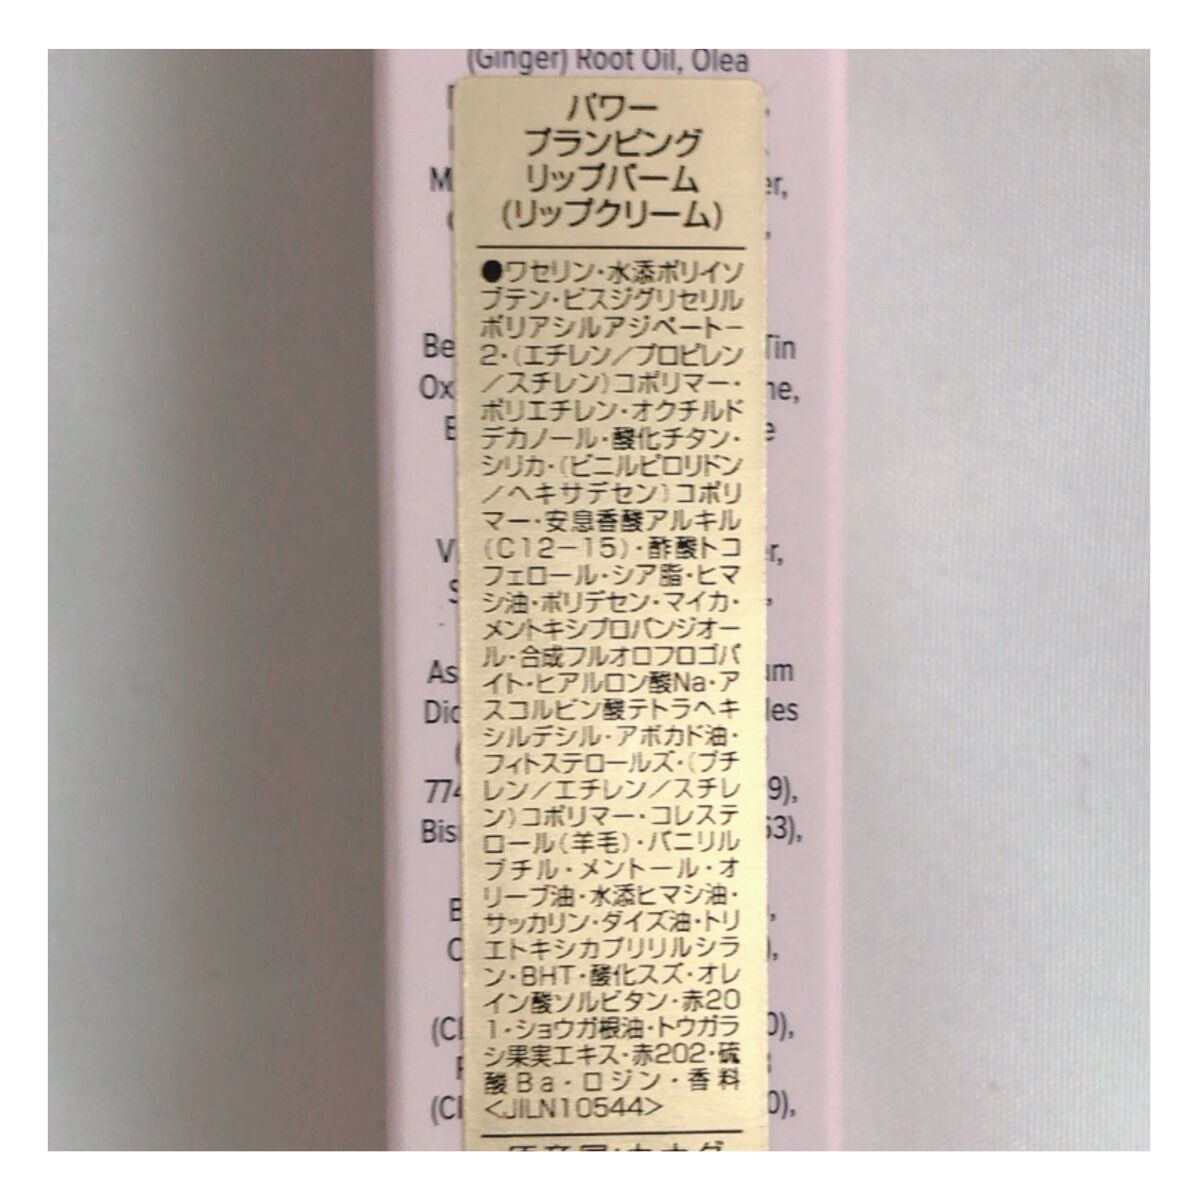 (Ginger) Root Oil, Olea
パワー
プランピング
リップバーム
(リップクリーム)
●ワセリン・水添ポリイソ
ブテン・ビスジグリセリル
ポリアシルアジペート-
2・(エチレン/プロピレン
/スチレン)コポリマー・
ポリエチレン・オクチルド
デカノール・酸化チタン・
シリカ・(ビニルピロリドン
/ヘキサデセン)コポリ
マー・安息香酸アルキル
(C12-15)・酢酸トコ
フェロール・シア脂・ヒマ
シ油・ポリデセン・マイカ・
メントキシプロパンジオー
ル・合成フルオロフロゴパ
イト・ヒアルロン酸Na・ア
スコルビン酸テトラヘキ
シルデシル・アボカド油・
フィトステロールズ・(ブチ
レン/エチレン/スチレ
ン)コポリマー・コレステ
ロール(羊毛)・バニリル
ブチル・メントール・オ
リーブ油・水添ヒマシ油・
サッカリン・ダイズ油・トリ
エトキシカプリリルシラ
ン・BHT・酸化スズ・オレ
イン酸ソルビタン・赤20
1・ショウガ根油・トウガラ
シ果実エキス・赤202・硫
酸Ba・ロジン・香料
<JILN10544>